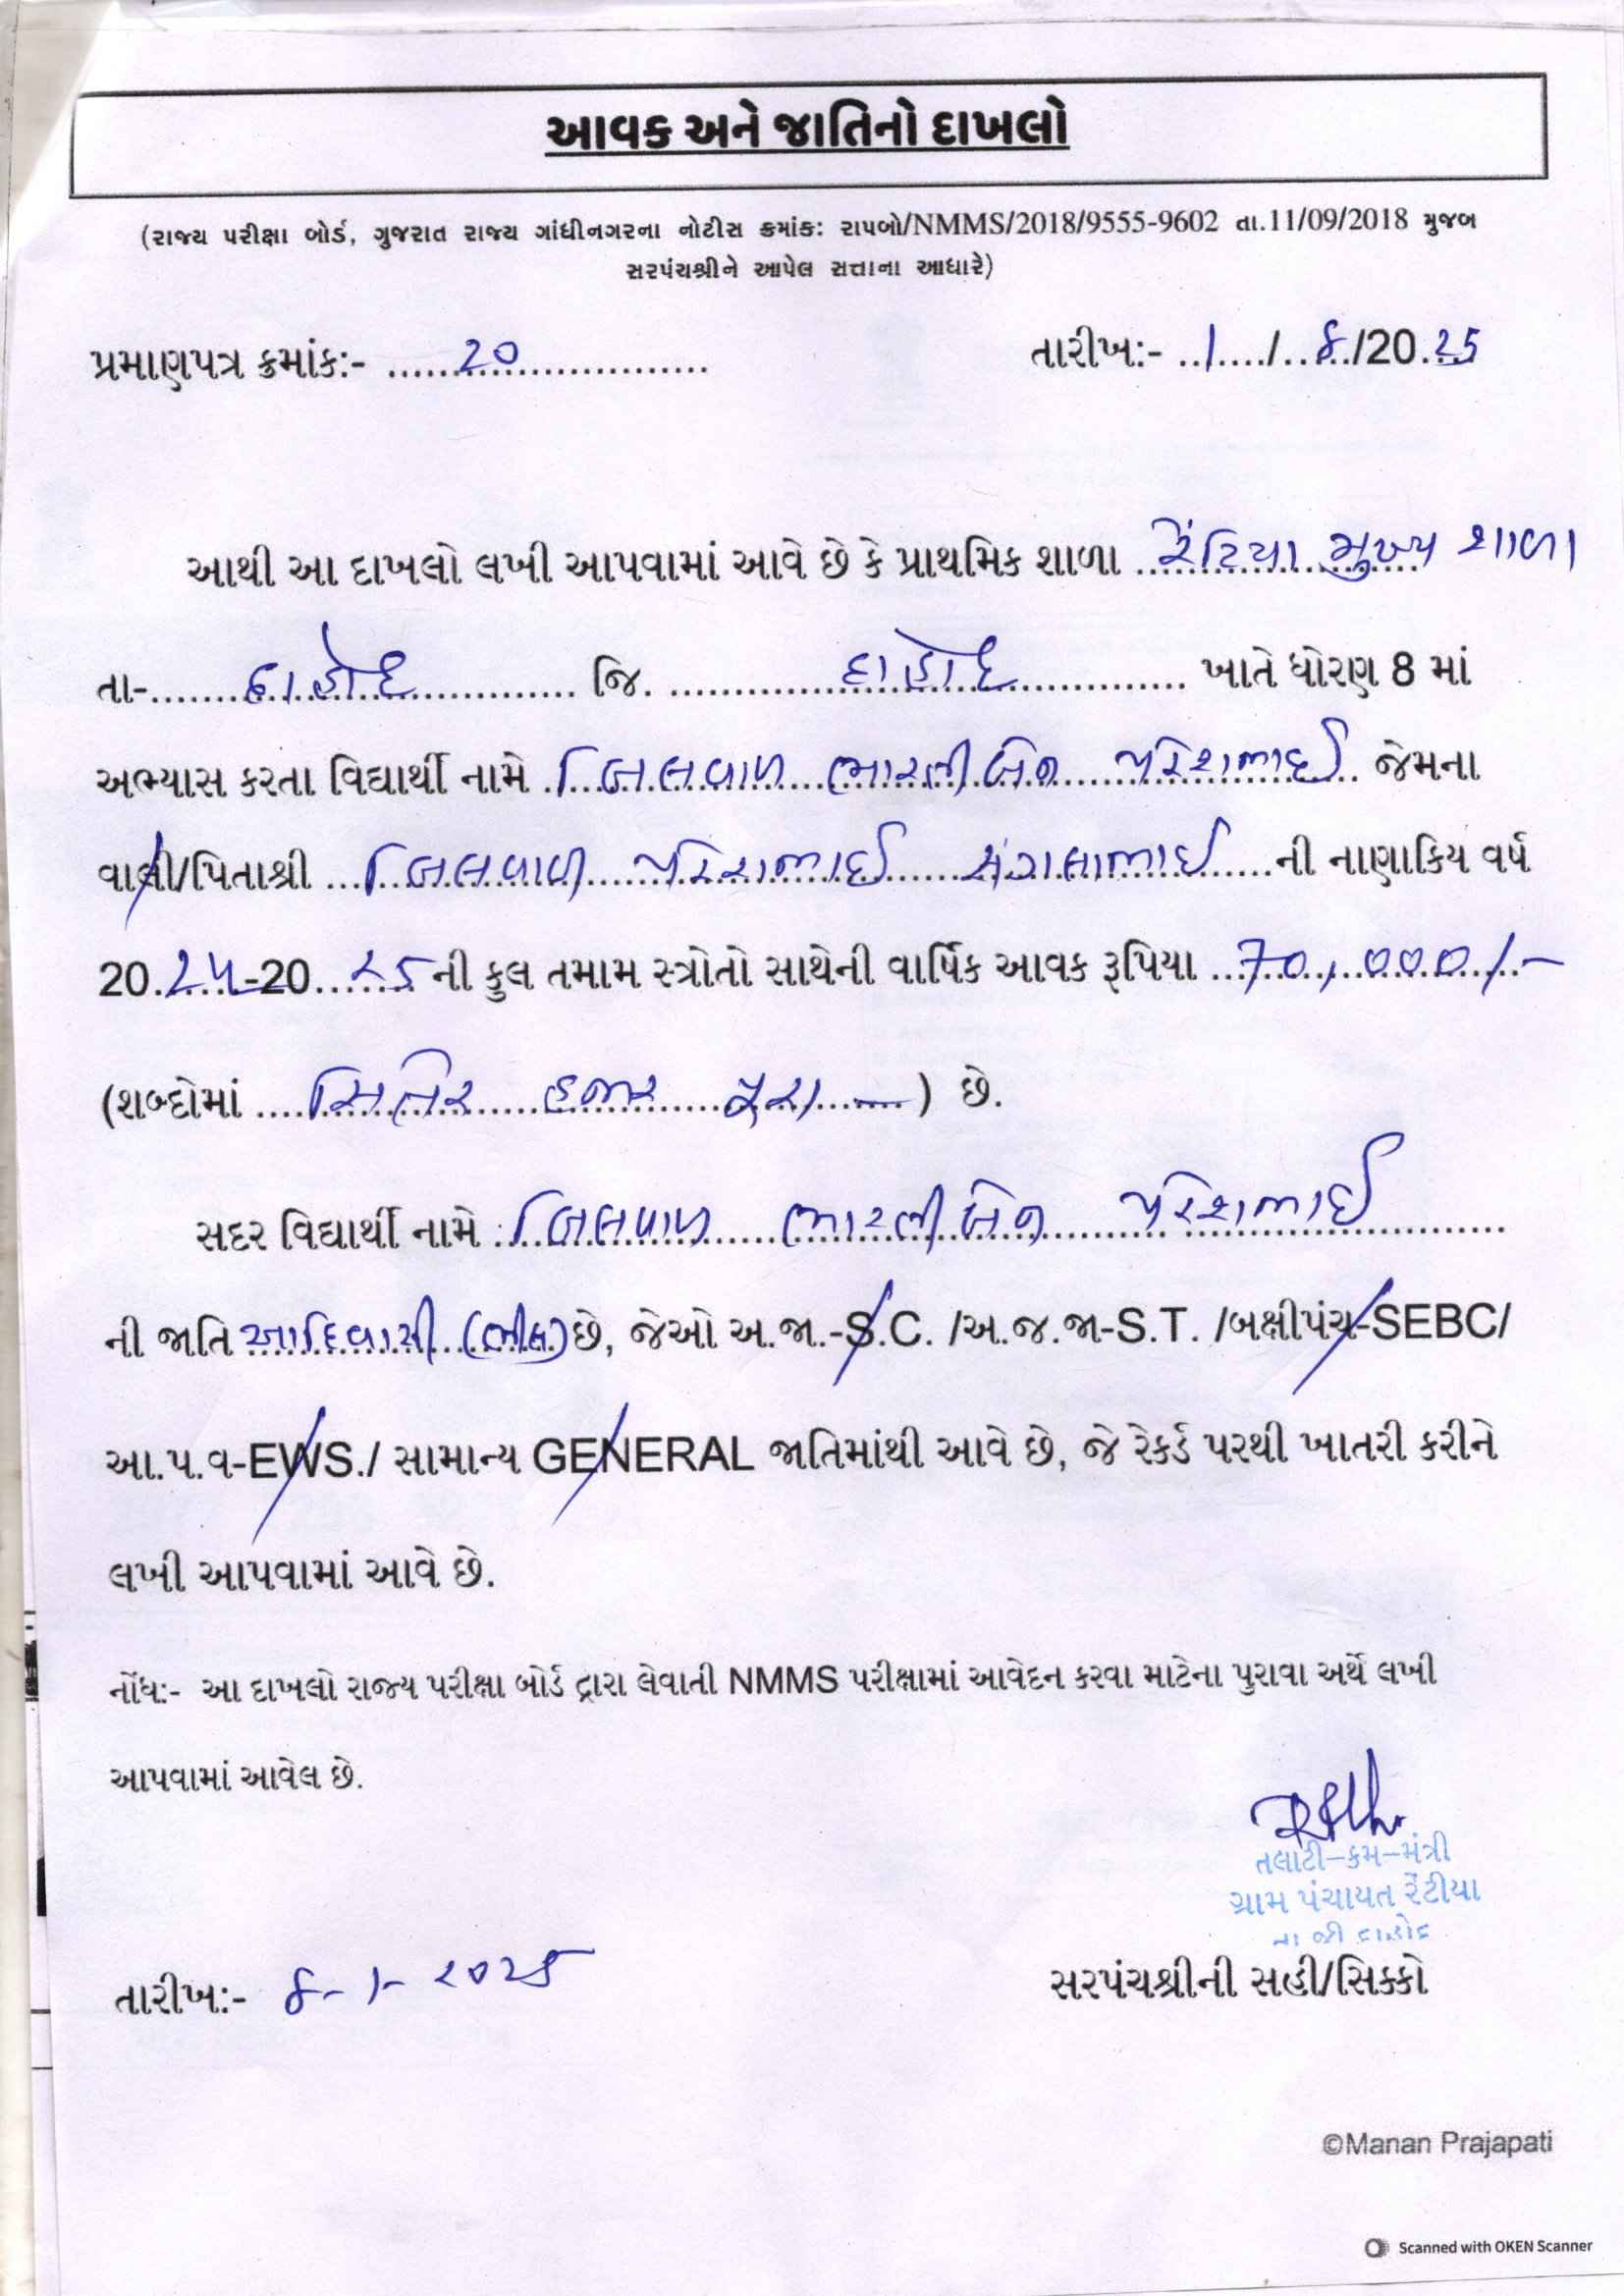 આવક અને જાતિનો દાખલો
(રાજ્ય પરીક્ષા બોર્ડ, ગુજરાત રાજ્ય ગાંધીનગરના નોટીસ ક્રમાંક: રાપબો/NMMS/2018/9555-9602 તા.11/09/2018 મુજબ
સરપંચશ્રીને આપેલ સત્તાના આધારે)
પ્રમાણપત્ર ક્રમાંક:- ......20........................ તારીખ:- ..1..../...8../20.25
આથી આ દાખલો લખી આપવામાં આવે છે કે પ્રાથમિક શાળા રેંટિયા મુખ્ય શાળા
તા-........દાહોદ............ જિ. ............દાહોદ............ ખાતે ધોરણ 8 માં
અભ્યાસ કરતા વિદ્યાર્થી નામે બિલવાળ ભારતીબેન પરેશભાઈ જેમના
વાલી/પિતાશ્રી ... બિલવાળ પરેશભાઈ ની નાણાકિય વર્ષ
20.24-20..25 ની કુલ તમામ સ્ત્રોતો સાથેની વાર્ષિક આવક રૂપિયા ...70,000/-
(શબ્દોમાં .... સિત્તેર હજાર પુરા —) છે.
સદર વિદ્યાર્થી નામે : બિલવાળ ભારતીબેન પરેશભાઈ
ની જાતિ આદિવાસી (ભીલ) છે, જેઓ અ.જા.-S.C. /અ.જ.જા-S.T. /બક્ષીપંચ-SEBC/
આ.પ.વ-EWS./ સામાન્ય GENERAL જાતિમાંથી આવે છે, જે રેકર્ડ પરથી ખાતરી કરીને
લખી આપવામાં આવે છે.
નોંધ:- આ દાખલો રાજ્ય પરીક્ષા બોર્ડ દ્વારા લેવાતી NMMS પરીક્ષામાં આવેદન કરવા માટેના પુરાવા અર્થે લખી
આપવામાં આવેલ છે.
તલાટી-કમ-મંત્રી
ગ્રામ પંચાયત રેંટીયા
તા જી દાહોદ
તારીખ:- 8-1-2025 સરપંચશ્રીની સહી/સિક્કો
©Manan Prajapati
Scanned with OKEN Scanner